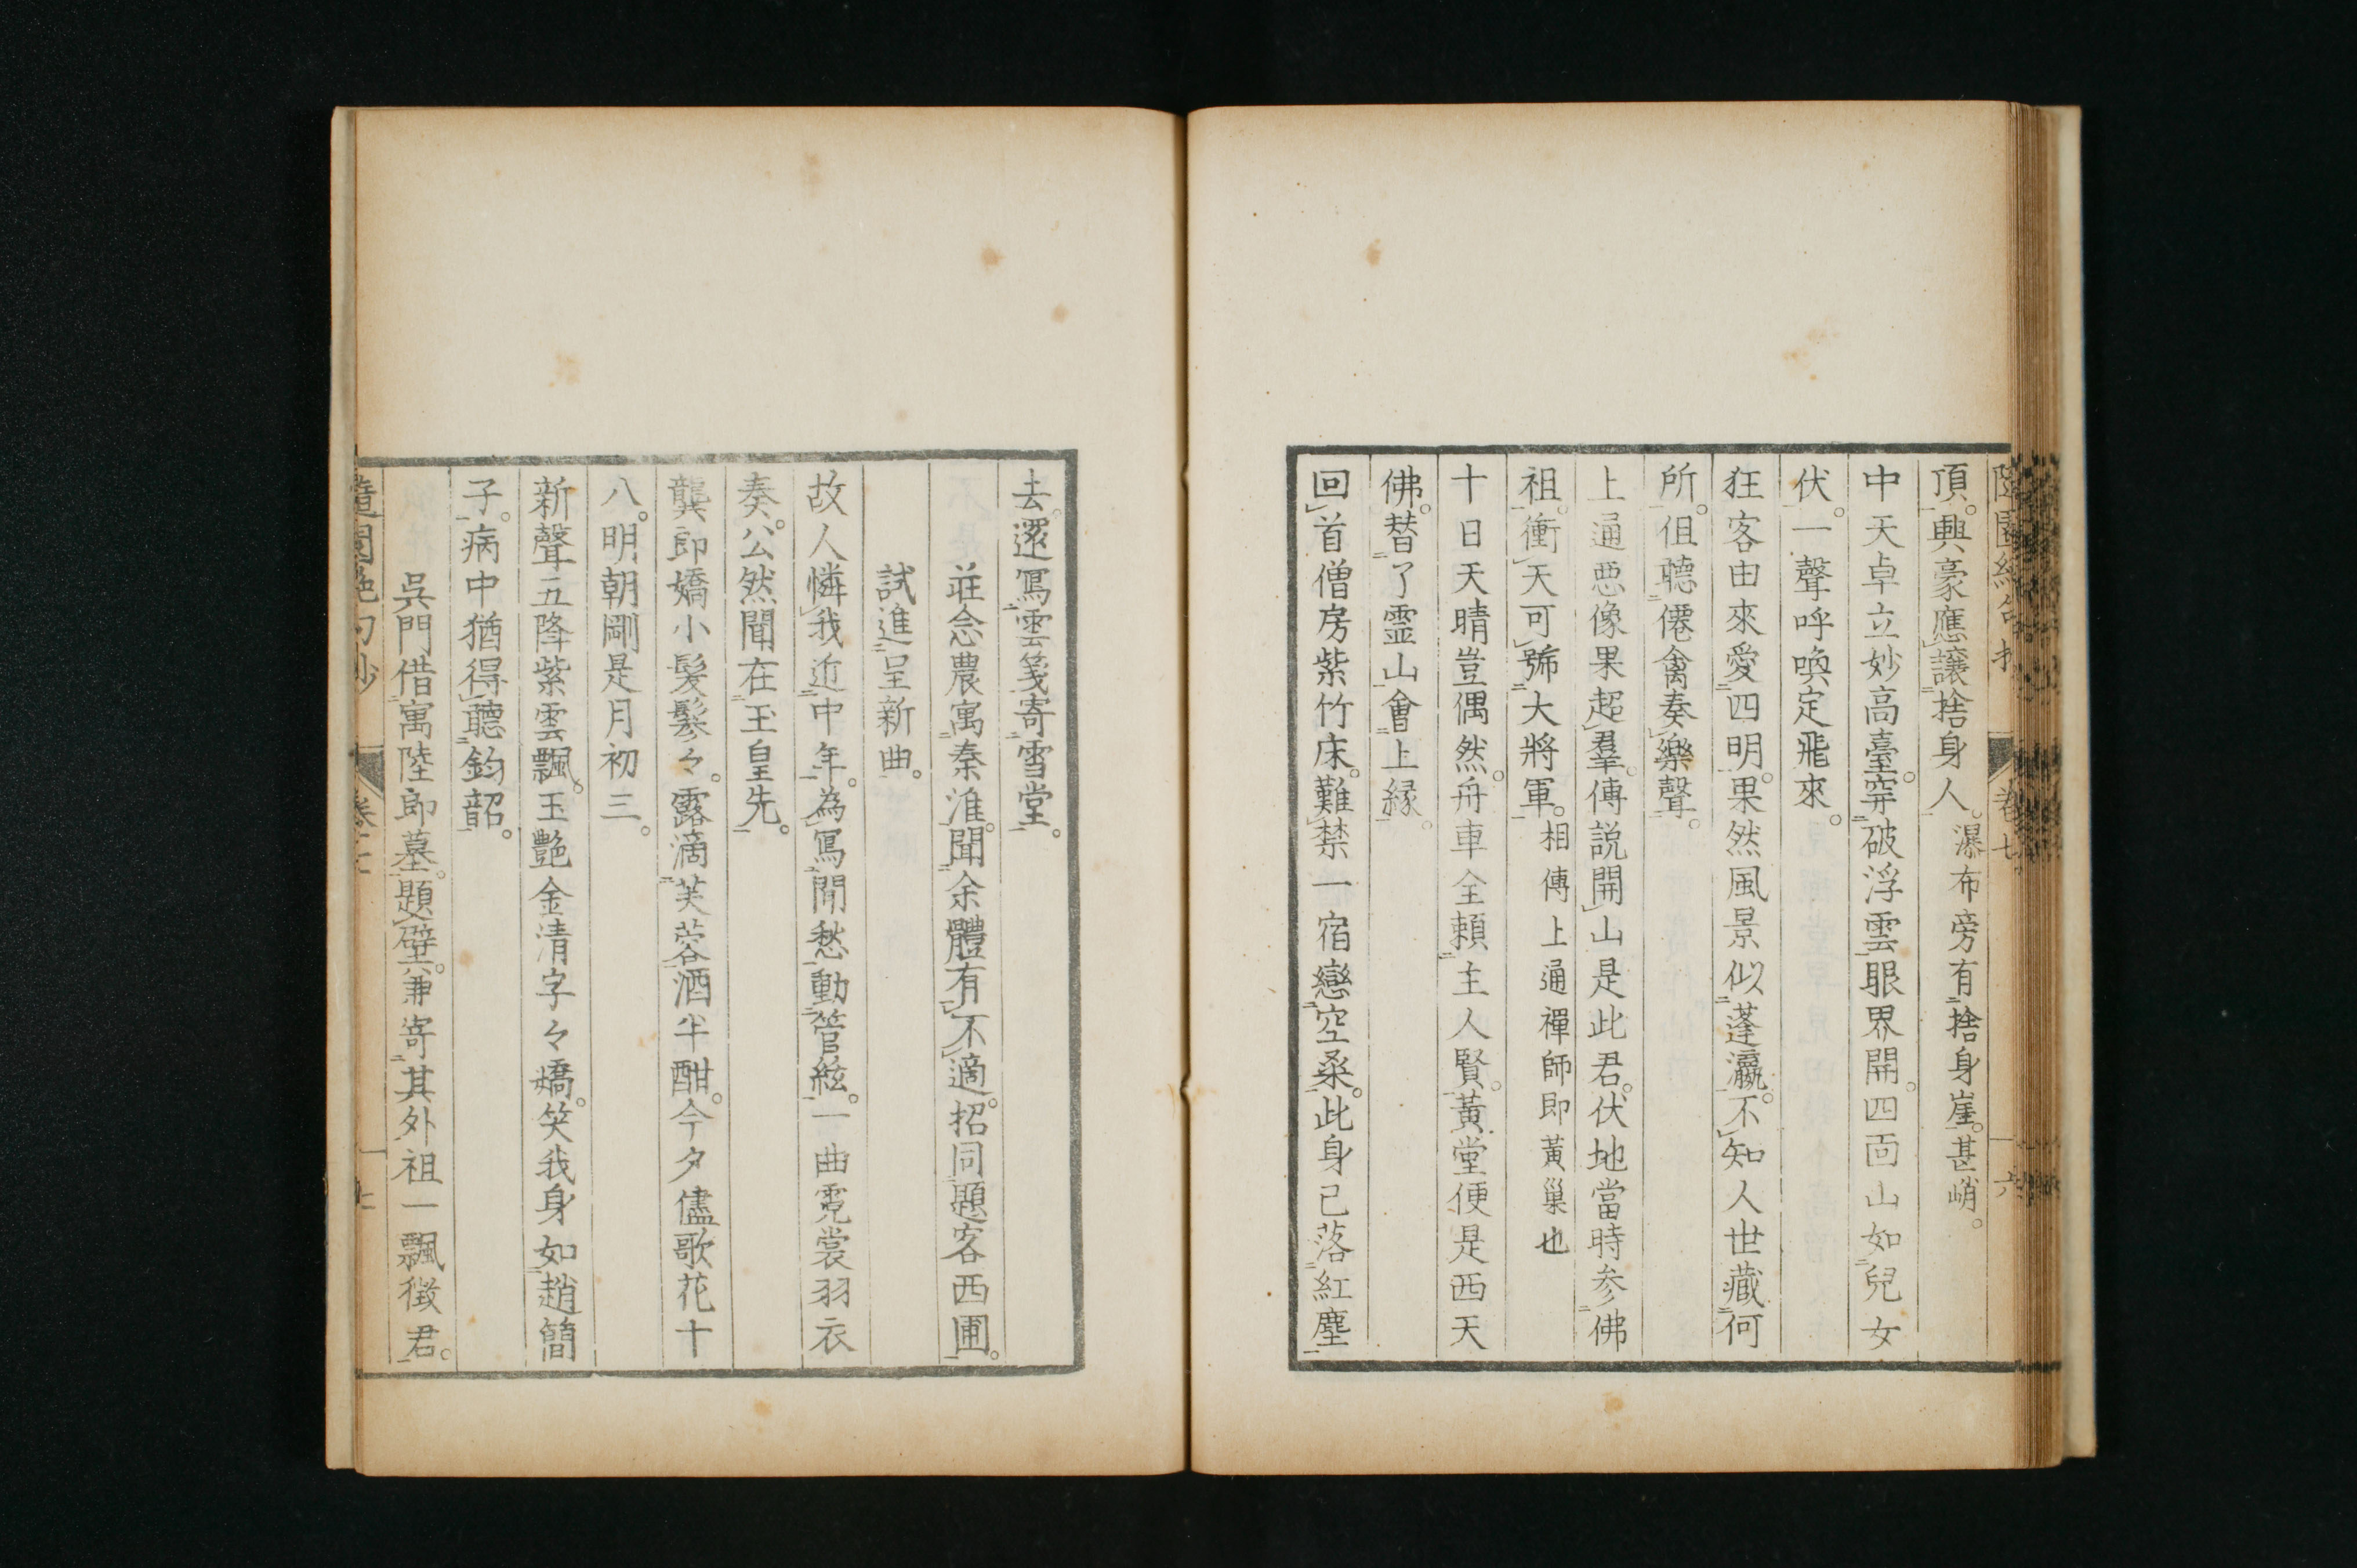 頂。興豪應讓捨身人。瀑布旁有捨身崖。甚峭。
中天卓立妙高臺。穿破浮雲眼界開。四面山如兒女
伏。一聲呼喚定飛來。
狂客由來愛四明。果然風景似蓬瀛。不知人世藏何
所。但聽僊禽奏樂聲。
上通惡像果超羣。傳説開山是此君。伏地當時參佛
祖。衝天可號大將軍。相傳上通禪師即黃巢也
十日天晴豈偶然。舟車全賴主人賢。黃堂便是西天
佛。替了霊山會上縁。
回首僧房紫竹床。難禁一宿戀空桑。此身已落紅塵
去。還寫雲箋寄雪堂。
莊念農寓秦淮。聞余體有不適。招同題客西圃。
試進呈新曲。
故人憐我近中年。為寫閒愁動管絃。一曲霓裳羽衣
奏。公然聞在玉皇先。
龔郎嬌小髮鬖々。露滴芙蓉酒半酣。今夕儘歌花十
八。明朝剛是月初三。
新聲五降紫雲飄。玉艷金清字々嬌。笑我身如趙簡
子。病中猶得聽鈞韶。
吳門借寓陸郎墓。題壁。兼寄其外祖一飄徴君。